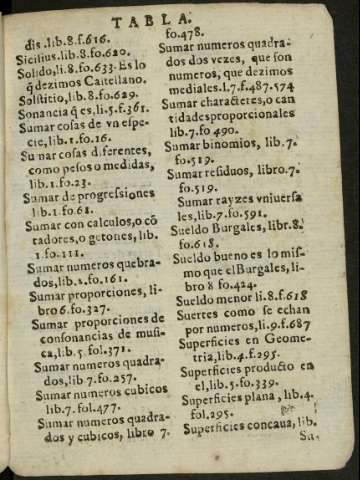 TABLA.
dis .lib.8.f.616.
Sicilius.lib.8.fo.620.
Solido,li.8.fo.633.Es lo
q̃ dezimos Castellano.
Solsticio, lib.8.fo.629.
Sonancia q̃ es, li.5.f.361.
Sumar cosas de vn espe-
cie, lib.1.fo.16.
Sumar cosas diferentes,
como pesos o medidas,
lib.1.fo.23.
Sumar de progressiones
lib.1.fo.61.
Sumar con calculos, o cõ
tadores, o getones, lib.
1.fo.111.
Sumar numeros quebra-
dos, lib.2.fo.161.
Sumar proporciones, li-
bro 6.fo.327.
Sumar proporciones de
consonancias de musi-
ca, lib.5.fol.371.
Sumar numeros quadra-
dos, lib 7.fo.257.
Sumar numeros cubicos
lib.7.fol.477.
Sumar numeros quadra-
dos y cubicos, libro 7.
fo.478.
Sumar numeros quadra-
dos dos vezes, que son
numeros, que dezimos
mediales.l.7.f.487.574
Sumar characteres, o can
tidades proporcionales
lib.7.fo 490.
Sumar binomios, lib.7.
fo.519.
Sumar residuos, libro.7.
fo.519.
Sumar rayzes vniuersa
les, lib.7.fo.591.
Sueldo Burgales, libr.8.
fo.618.
Sueldo bueno es lo mis-
mo que el Burgales, li-
bro 8 fo.424.
Sueldo menor li.8.f.618
Suertes como se echan
por numeros, li.9.f.687
Superficies en Geome-
tria, lib.4.f.295.
Superficies producto en
el, lib.5.fo.339.
Superficies plana, lib.4.
fol.295.
Superficies concaua, lib.
Su-